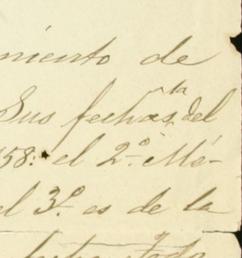 miento de
Sus fechas del
58: el 2º Mé-
el 3º es de la